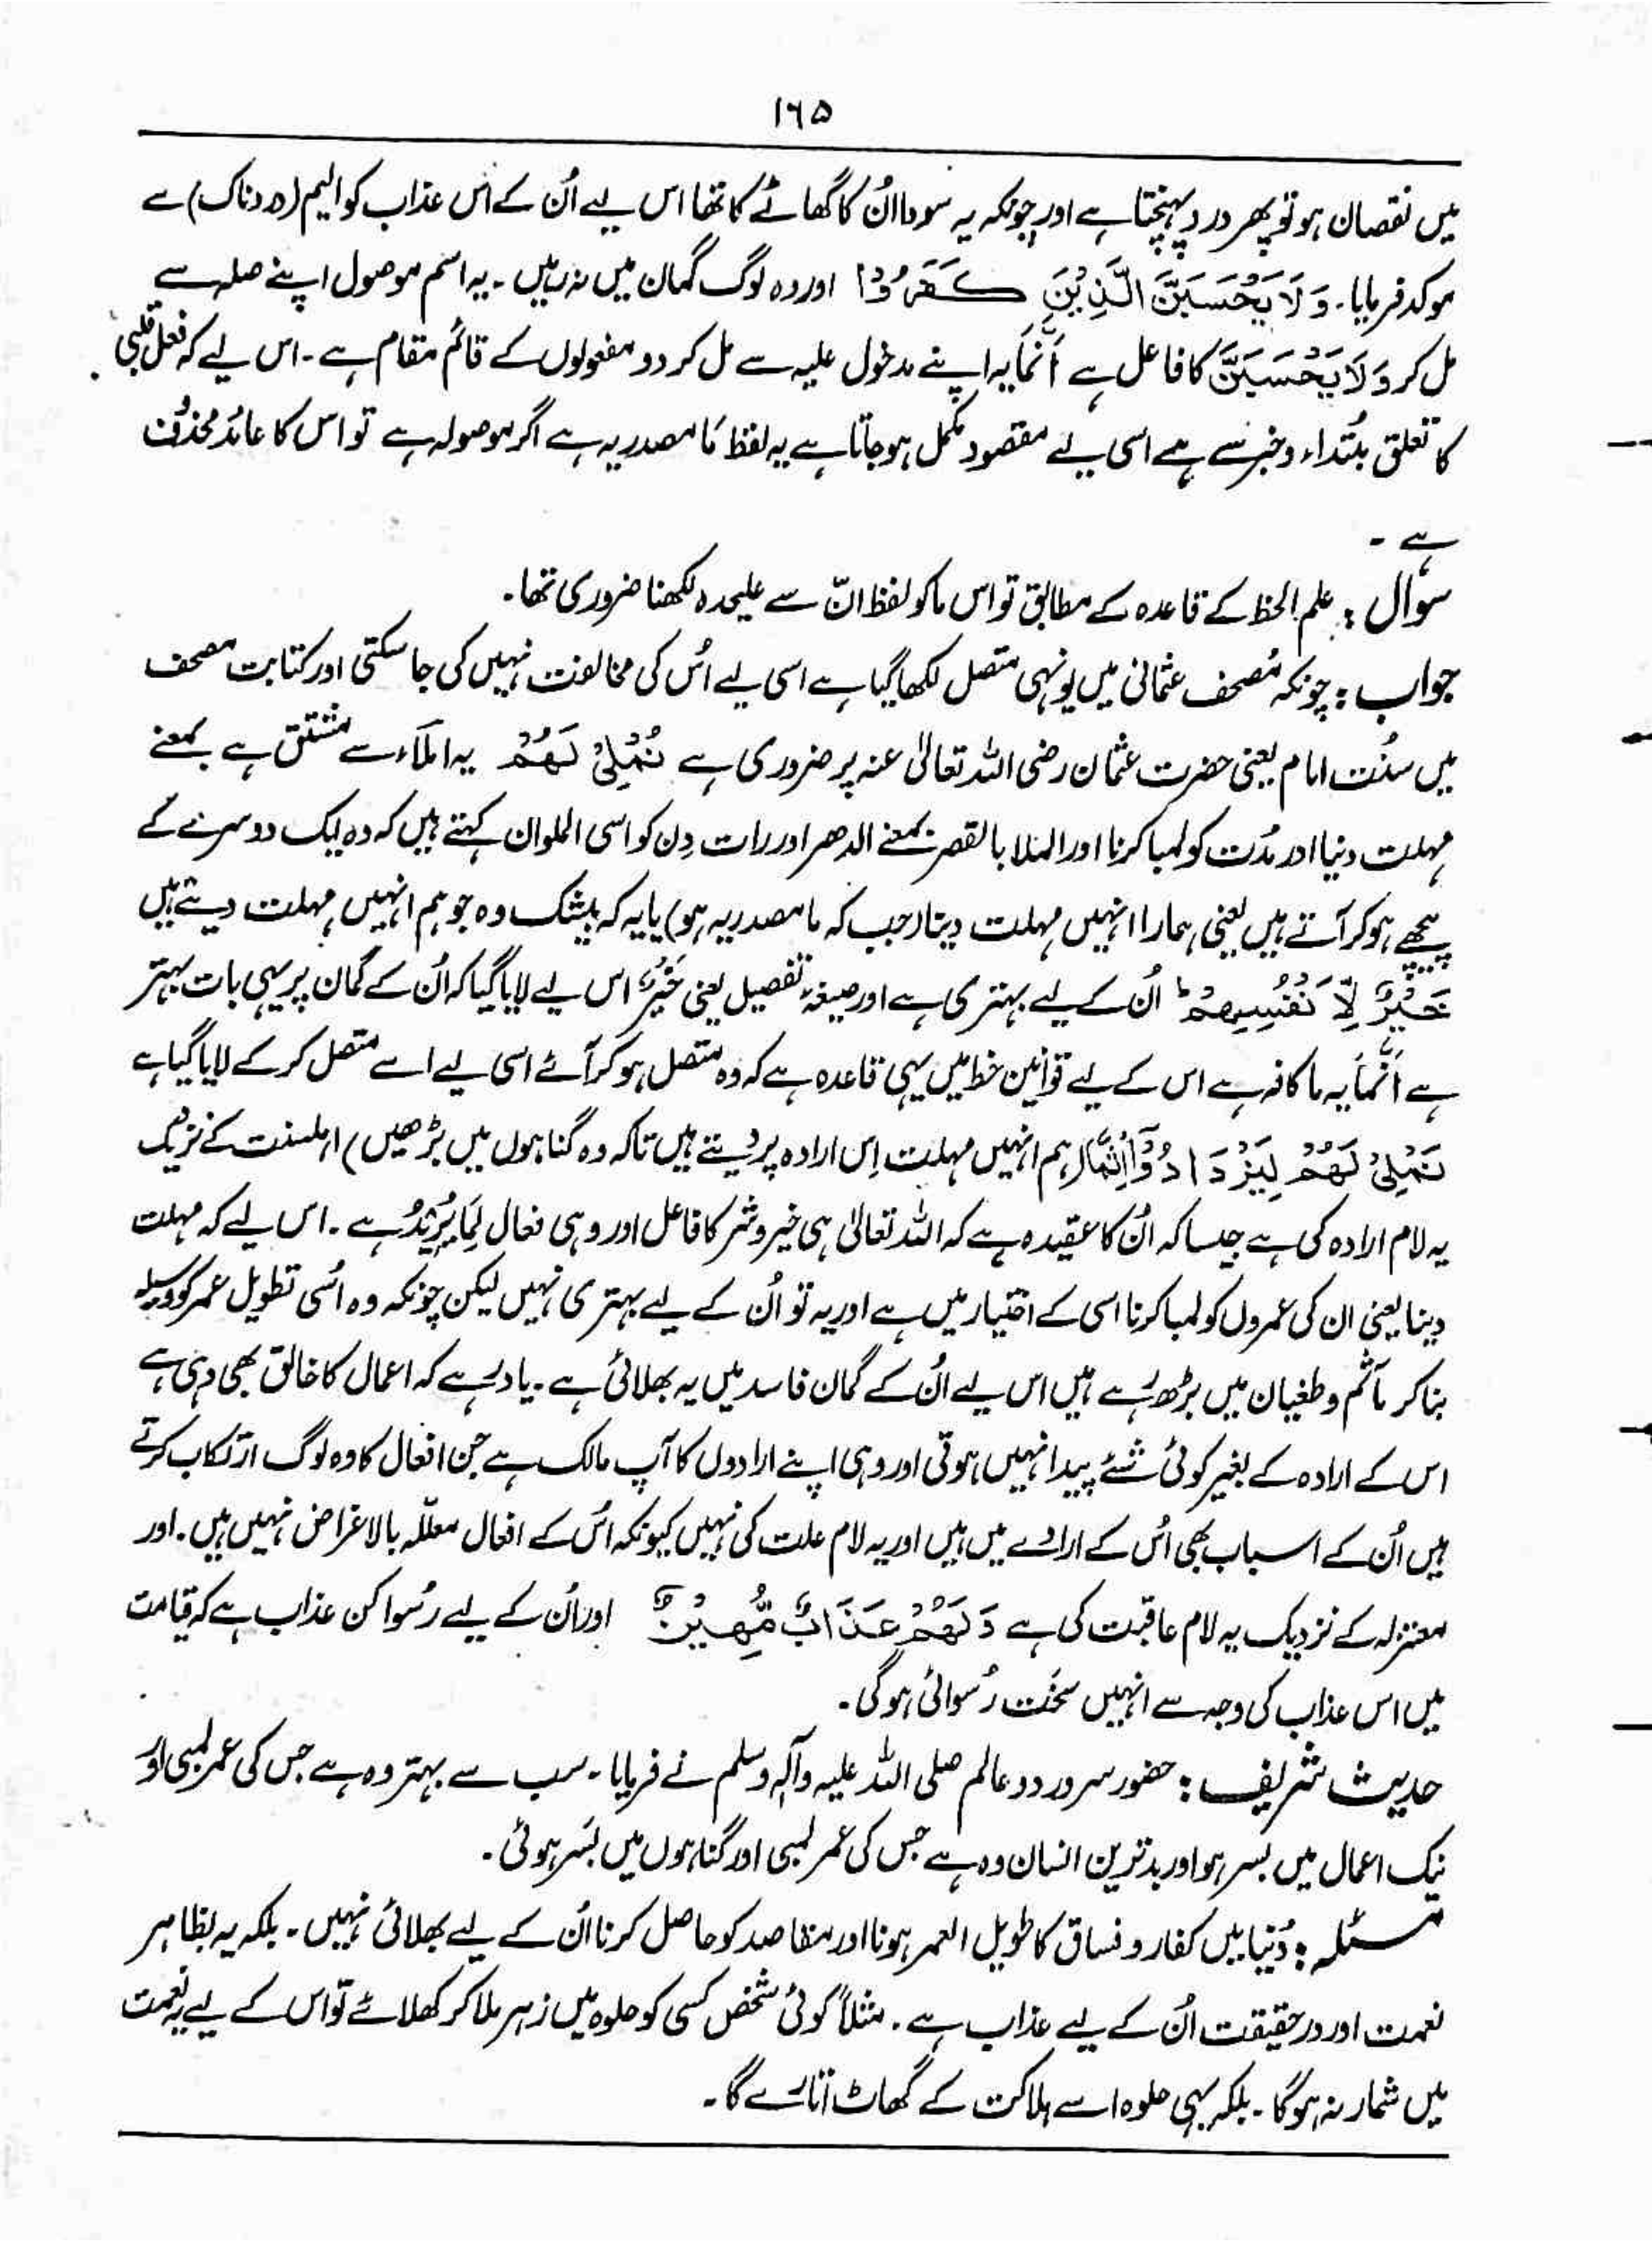 ۱۶۵
میں نقصان ہو تو پھر درد پہنچتا ہے اور چونکہ یہ سودا اُن کا گھاٹے کا تھا اس لیے اُن کے اس عذاب کو الیم (دردناک) سے
موکد فرمایا۔ وَلَا یَحْسَبَنَّ الَّذِیْنَ کَفَرُوْا اور وہ لوگ گمان میں نہ رہیں۔ یہ اسم موصول اپنے صلہ سے
مل کر وَلَا یَحْسَبَنَّ کا فاعل ہے اَنَّمَا یہ اپنے مدخول علیہ سے مل کر دو مفعولوں کے قائم مقام ہے۔ اس لیے کہ فعل قلبی
کا تعلق مبتداء و خبر سے ہے اسی لیے مقصود مکمل ہو جاتا ہے یہ لفظ مَا مصدریہ ہے اگر موصولہ ہے تو اس کا عائد محذوف
ہے ۔
سوال : علم الخط کے قاعدہ کے مطابق تو اس ما کو لفظ انّ سے علیحدہ لکھنا ضروری تھا۔
جواب : چونکہ مُصحف عثمانی میں یونہی متصل لکھا گیا ہے اسی لیے اُس کی مخالفت نہیں کی جا سکتی اور کتابت مصحف
میں سنُت امام یعنی حضرت عثمان رضی اللہ تعالیٰ عنہ پر ضروری ہے نُمْلِیْ لَھُمْ یہ املاَء سے مشتق ہے بمعنے
مہلت دنیا اور مُدت کو لمبا کرنا اور الملا بالقصر بمعنے الدھر اور رات دِن کو اسی الملوان کہتے ہیں کہ وہ ایک دوسرے کے
پیچھے ہو کر آتے ہیں یعنی ہمارا انہیں مہلت دینا (جب کہ ما مصدریہ ہو) یا یہ کہ بیشک وہ جو ہم انہیں مہلت دیتے ہیں
خَیْرٌ لِّاَنْفُسِھِمْ ط اُن کے لیے بہتری ہے اور صیغۂ تفصیل یعنی خَیْرٌ اس لیے لایا گیا کہ اُن کے گمان پر یہی بات بہتر
ہے اَنَّمَا یہ ما کافہ ہے اس کے لیے قوانین خط میں یہی قاعدہ ہے کہ وہ متصل ہو کر آئے اسی لیے اسے متصل کر کے لایا گیا ہے
نُمْلِیْ لَھُمْ لِیَزْدَادُوْٓا اِثْمًا (ہم انہیں مہلت اِس ارادہ پر دیتے ہیں تاکہ وہ گناہوں میں بڑھیں) اہلسنت کے نزدیک
یہ لام ارادہ کی ہے جیسا کہ اُن کا عقیدہ ہے کہ اللہ تعالیٰ ہی خیر و شر کا فاعل اور وہی فعال لِّمَا یُرِیْدُ ہے۔ اس لیے کہ مہلت
دینا یعنی ان کی عمروں کو لمبا کرنا اسی کے اختیار میں ہے اور یہ تو اُن کے لیے بہتری نہیں لیکن چونکہ وہ اُسی تطویل عمر کو وسیلہ
بنا کر مآثم و طغیان میں بڑھ رہے ہیں اس لیے اُن کے گمان فاسد میں یہ بھلائی ہے۔ یاد رہے کہ اعمال کا خالق بھی وہی ہے
اس کے ارادہ کے بغیر کوئی شئے پیدا نہیں ہوتی اور وہی اپنے ارادوں کا آپ مالک ہے جن افعال کا وہ لوگ ارتکاب کرتے
ہیں اُن کے اسباب بھی اُس کے ارادے میں ہیں اور یہ لام علت کی نہیں کیونکہ اُس کے افعال معلّلہ بالاغراض نہیں ہیں۔ اور
معتزلہ کے نزدیک یہ لام عاقبت کی ہے وَلَھُمْ عَذَابٌ مُّھِیْنٌ اور اُن کے لیے رُسوا کن عذاب ہے کہ قیامت
میں اس عذاب کی وجہ سے انہیں سخت رُسوائی ہو گی۔
حدیث شریف : حضور سرور دو عالم صلی اللہ علیہ وآلہٖ وسلم نے فرمایا۔ سب سے بہتر وہ ہے جس کی عمر لمبی اور
نیک اعمال میں بسر ہو اور بدترین انسان وہ ہے جس کی عمر لمبی اور گناہوں میں بَسر ہوئی۔
مسئلہ : دُنیا میں کفار و فساق کا طویل العمر ہونا اور مقاصد کو حاصل کرنا اُن کے لیے بھلائی نہیں۔ بلکہ یہ بظاہر
نعمت اور درحقیقت اُن کے لیے عذاب ہے۔ مثلاً کوئی شخص کسی کو حلوہ میں زہر ملا کر کھلائے تو اس کے لیے یہ نعمت
میں شمار نہ ہو گا۔ بلکہ یہی حلوہ اسے ہلاکت کے گھاٹ اتارے گا۔